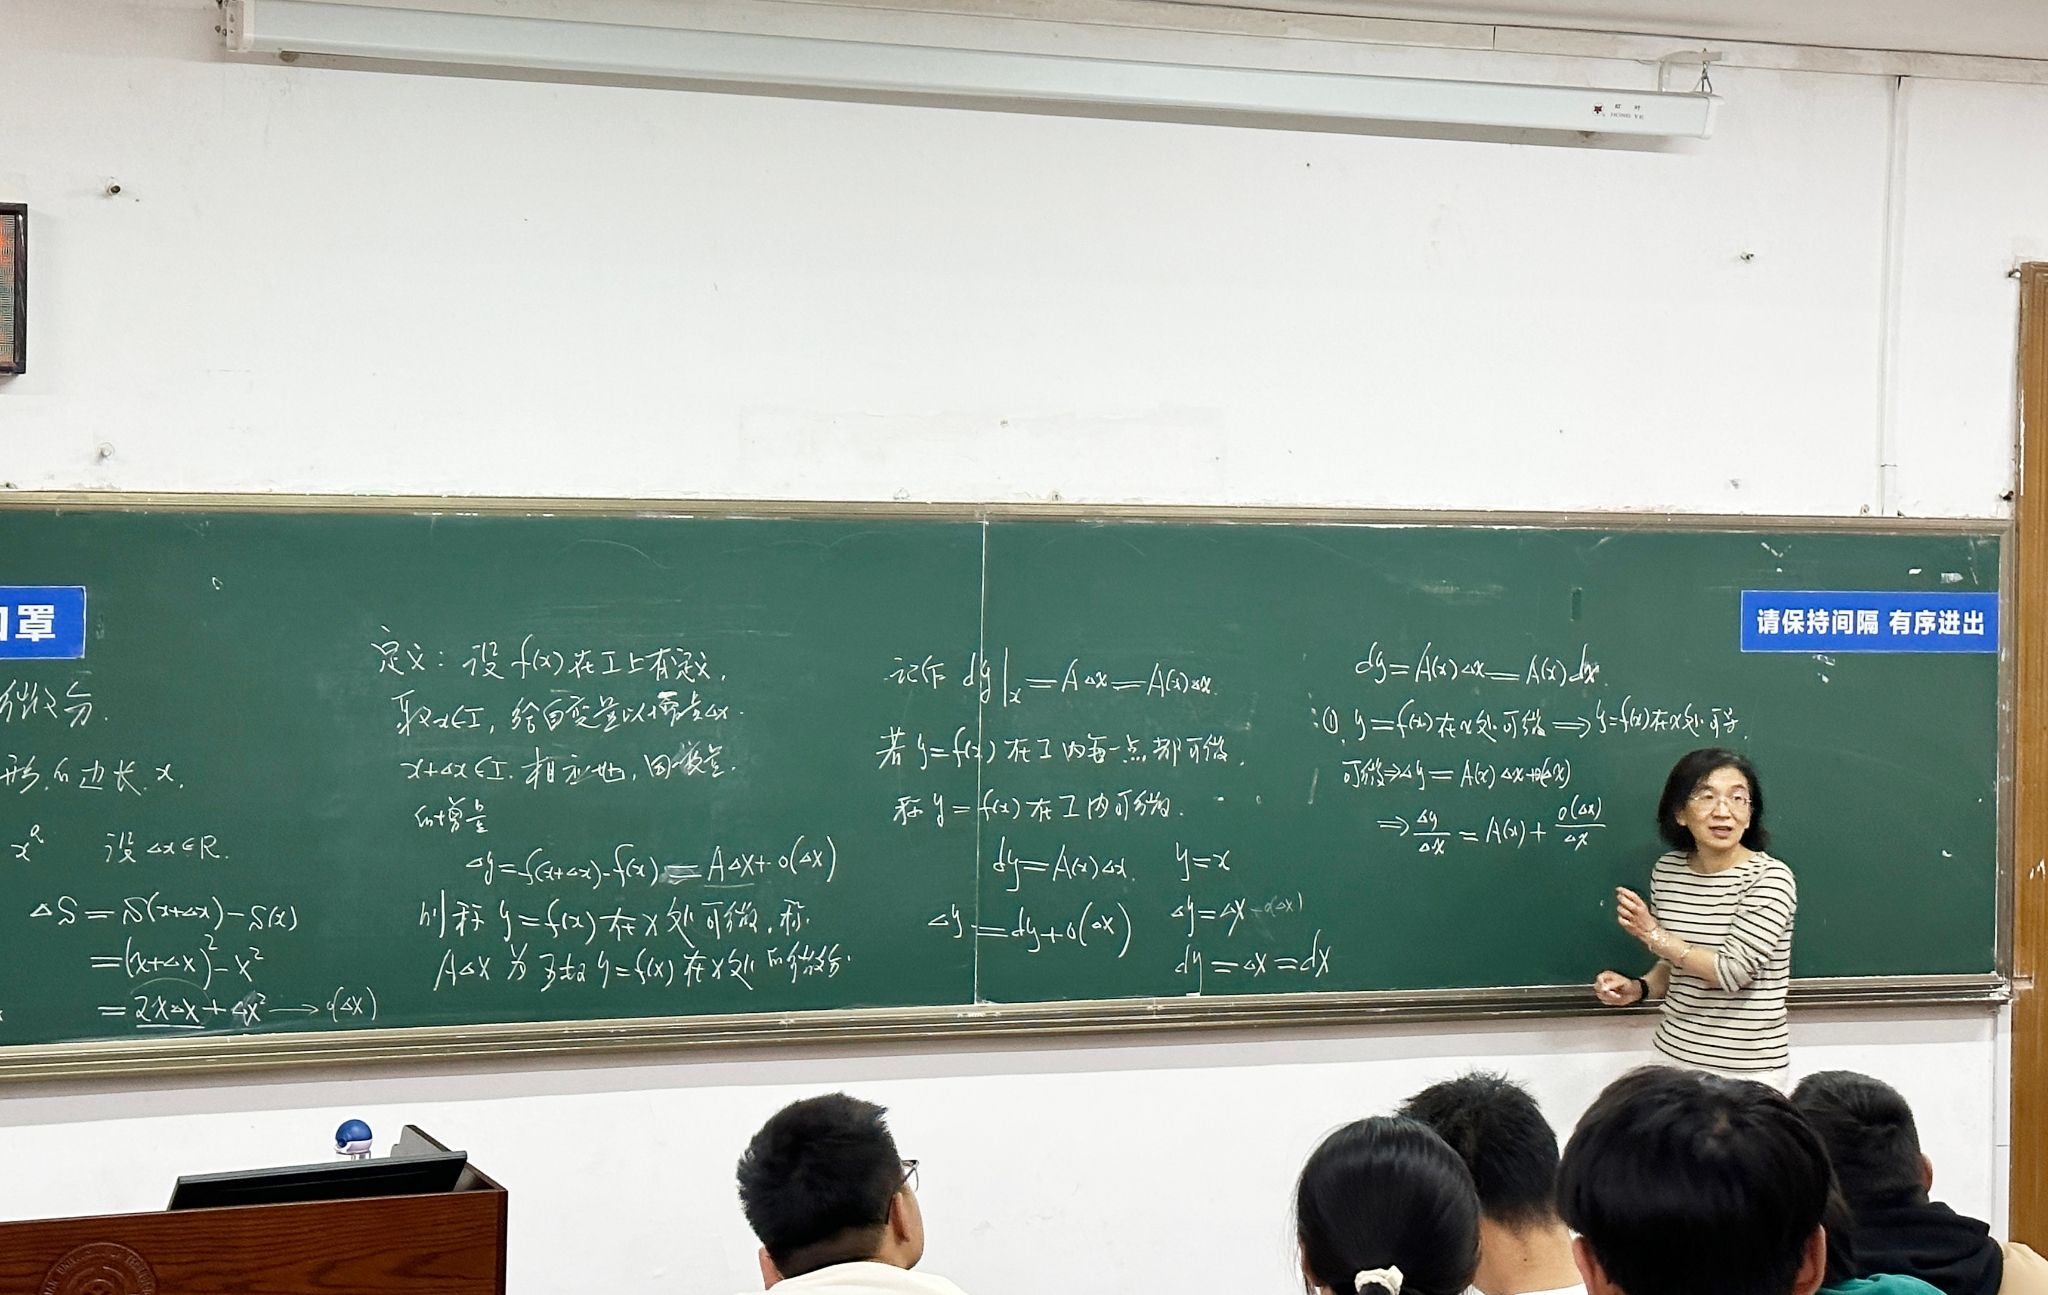 红叶
HONG YE
口罩
请保持间隔 有序进出
微分.
形的边长 x.
x² 设 Δx∈R.
ΔS = S(x+Δx) - S(x)
= (x+Δx)² - x²
= 2xΔx + Δx² → o(Δx)
定义: 设 f(x) 在 I 上有定义,
取 x∈I, 给自变量以增量 Δx.
x+Δx∈I. 相应地, 因变量.
的增量
Δy = f(x+Δx) - f(x) = AΔx + o(Δx)
则称 y = f(x) 在 x 处可微, 称
AΔx 为 y = f(x) 在 x 处的微分.
记作 dy|ₓ = AΔx = A(x)Δx.
若 y = f(x) 在 I 内每一点都可微,
称 y = f(x) 在 I 内可微.
dy = A(x)Δx. y = x
Δy = dy + o(Δx) Δy = Δx - o(Δx)
dy = Δx = dx
dy = A(x)Δx = A(x)dx.
① y = f(x) 在 x 处可微 ⟹ y = f(x) 在 x 处可导.
可微 ⇒ Δy = A(x)Δx + o(Δx)
⇒ Δy/Δx = A(x) + o(Δx)/Δx